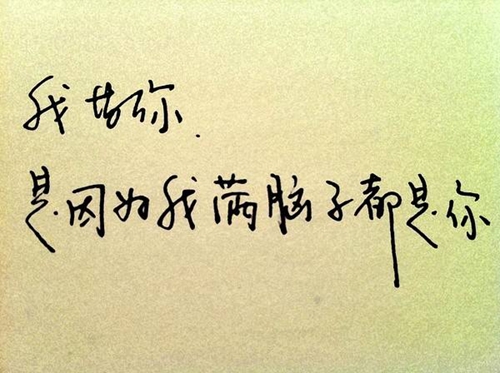 我做你.
是因为我满脑子都是你